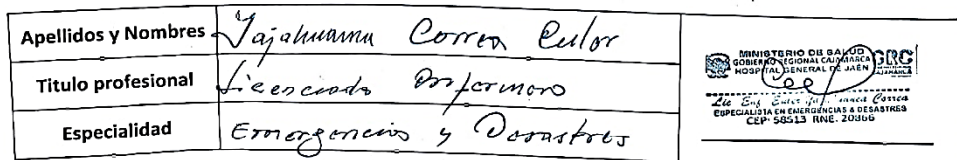 Apellidos y Nombres Jajahuanca Correa Euler
Titulo profesional Licenciado Enfermero
Especialidad Emergencias y Desastres
MINISTERIO DE SALUD
GOBIERNO REGIONAL CAJAMARCA GRC
HOSPITAL GENERAL DE JAÉN CAJAMARCA
Lic. Enf. Euler Correa
ESPECIALISTA EN EMERGENCIAS & DESASTRES
CEP: 58513 RNE. 20366